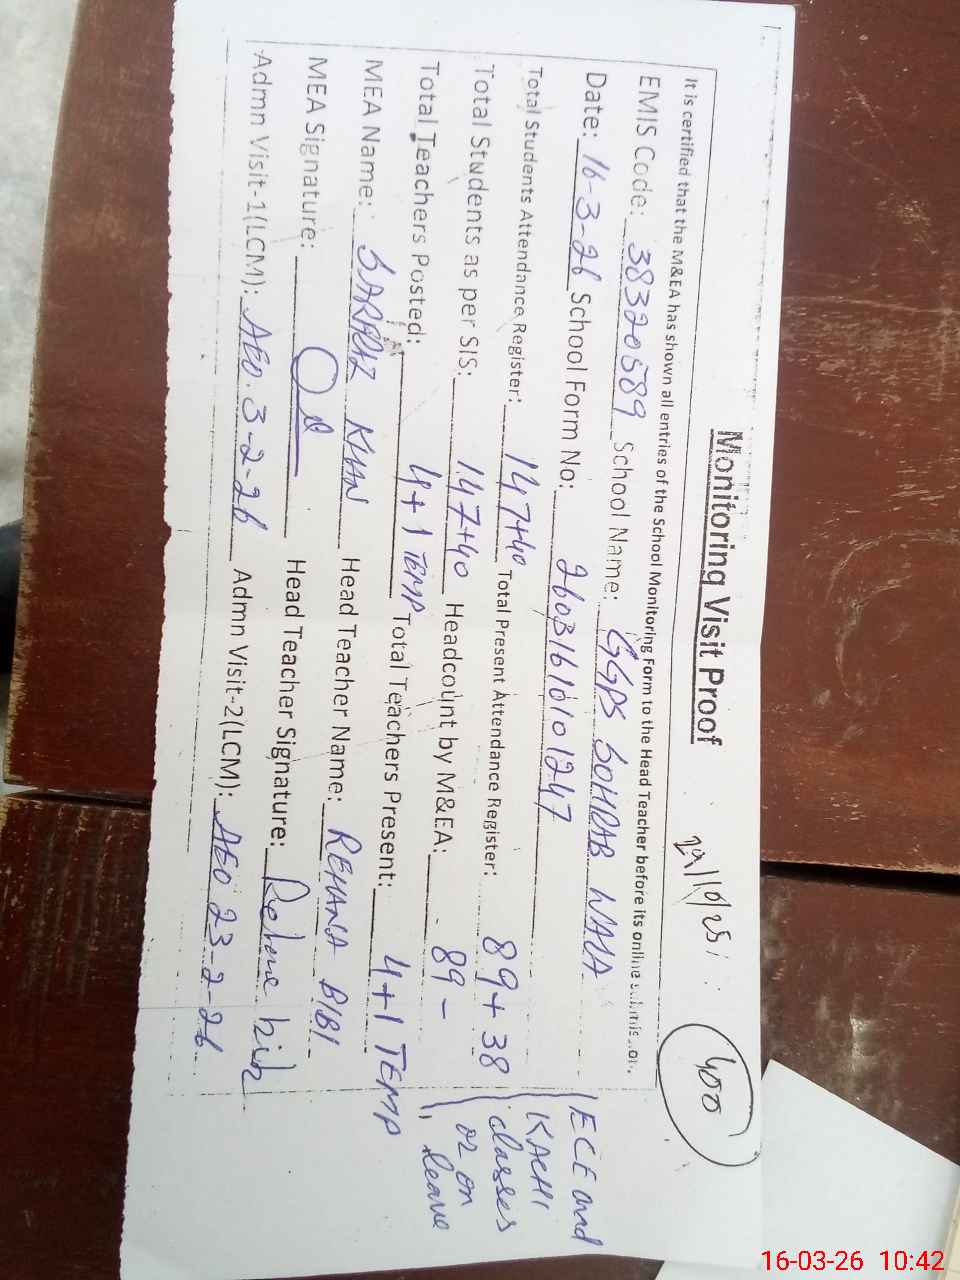 Monitoring Visit Proof
29/10/25
400
It is certified that the M&EA has shown all entries of the School Monitoring Form to the Head Teacher before its online submission.
EMIS Code: 38320589 School Name: GGPS SOHRAB WALA
Date: 16-3-26 School Form No: 26031610101247
Total Students Attendance Register: 147+40 Total Present Attendance Register: 89+38
Total Students as per SIS: 147+40 Headcount by M&EA: 89 -
Total Teachers Posted: 4+1 TEMP Total Teachers Present: 4+1 TEMP
MEA Name: SARFRAZ KHAN Head Teacher Name: REHANA BIBI
MEA Signature: Head Teacher Signature: Rehana bibi
Admn Visit-1(LCM): AEO. 3-2-26 Admn Visit-2(LCM): AEO 23-2-26
ECE and
KACHI
classes
or on
leave
16-03-26 10:42